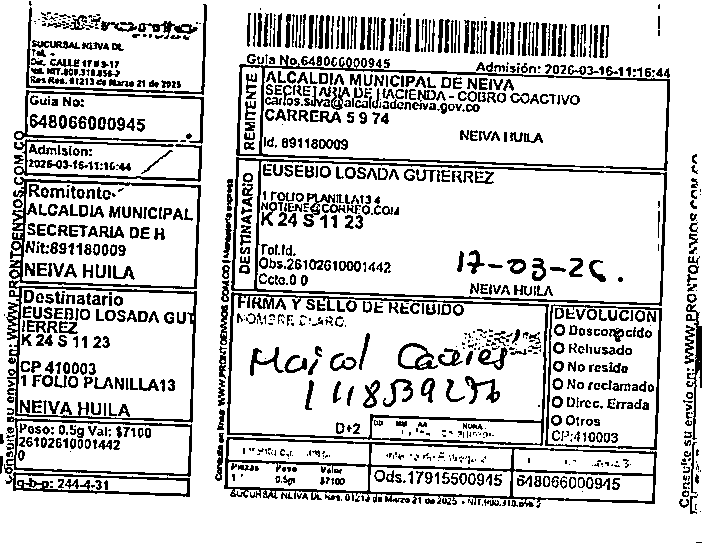 SUCURSAL NEIVA DL
Tel. -
Dir. CALLE 17 # 5-17
Res Res. 01213 de Marzo 21 de 2025
Guia No:
648066000945
Admision:
2026-03-16-11:16:44
Remitente
ALCALDIA MUNICIPAL
SECRETARIA DE H
Nit:891180009
NEIVA HUILA
Destinatario
EUSEBIO LOSADA GUT
IERREZ
K 24 S 11 23
CP 410003
1 FOLIO PLANILLA13
NEIVA HUILA
Peso: 0.5g Val: $7100
26102610001442
0
g-b-p: 244-4-31
Consulte su envio en: WWW.PRONTOENVIOS.COM.CO
Guia No.648066000945
Admisión: 2026-03-16-11:16:44
REMITENTE
ALCALDIA MUNICIPAL DE NEIVA
SECRETARIA DE HACIENDA - COBRO COACTIVO
carlos.silva@alcaldiadeneiva.gov.co
CARRERA 5 9 74
NEIVA HUILA
Id. 891180009
DESTINATARIO
EUSEBIO LOSADA GUTIERREZ
1 FOLIO PLANILLA13 4
NOTIENE@CORREO.COM
K 24 S 11 23
Tel.Id.
Obs.26102610001442
Ccto.0 0
17-03-26.
NEIVA HUILA
FIRMA Y SELLO DE RECIBIDO
NOMBRE CLARO,
Maicol
D+2
DD MM AA HORA
DEVOLUCION
Desconocido
Rehusado
No reside
No reclamado
Direc. Errada
Otros
CP:410003
Piezas Peso Valor
1 0.5g $7100
Ods.17915500945
648066000945
SUCURSAL NEIVA DL Res. 01213 de Marzo 21 de 2025 - NIT.900.310.856-2
Consulte su envio en: WWW.PRONTOENVIOS.COM.CO